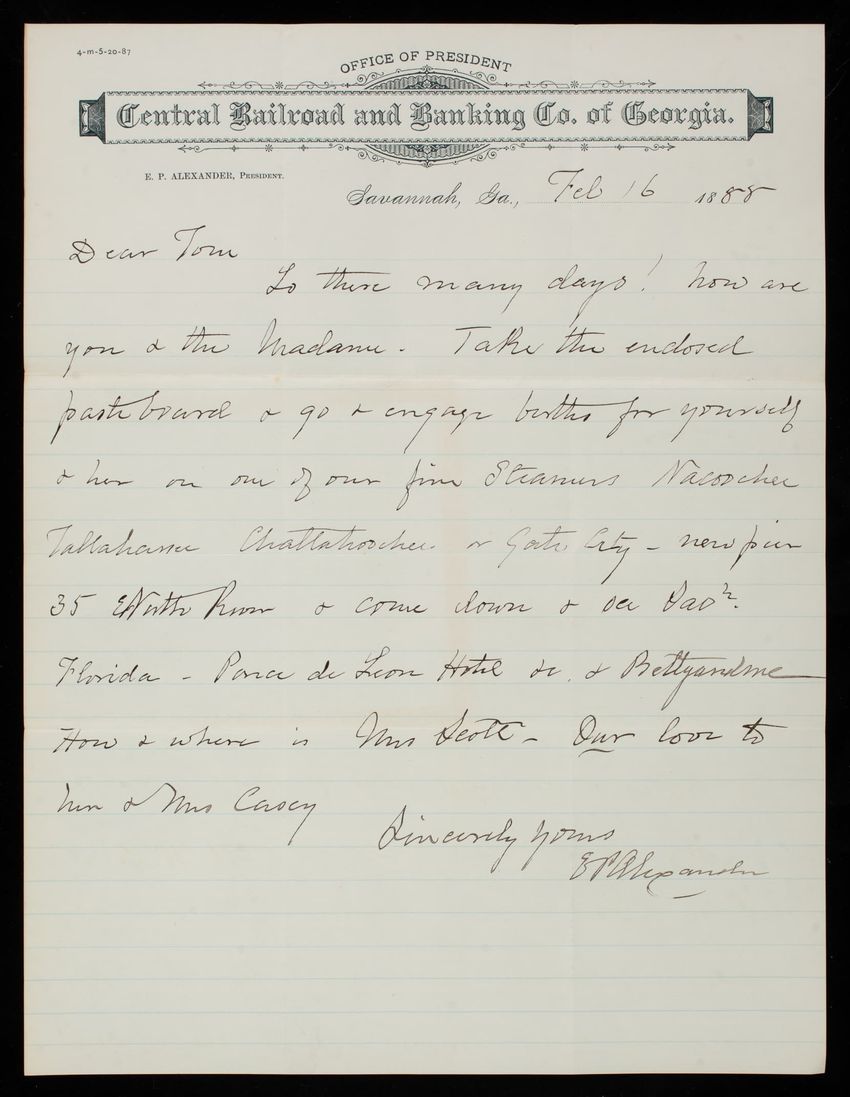 4-m-5-20-87
OFFICE OF PRESIDENT
Central Railroad and Banking Co. of Georgia.
E. P. ALEXANDER, PRESIDENT.
Savannah, Ga., Feb 16 1888
Dear Tom
Lo these many days! how are
you & the Madame. Take the enclosed
pasteboard & go & engage births for yourself
& her on one of our fine Steamers Nacoochee
Tallahassee Chattahoochee or Gate City - new pier
35 North River & come down & see Savh.
Florida - Ponce de Leon Hotel &c. & Bettyandme
How & where is Mrs Scott - Our love to
her & Mrs Casey
Sincerely yours
EPAlexander